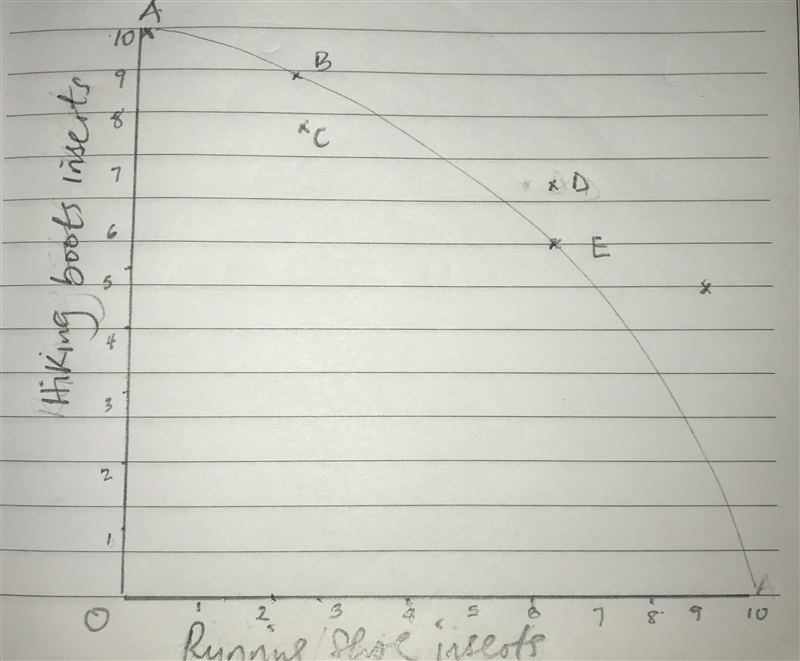 A
10
B
9
8
C
7
D
6
E
5
4
3
2
1
0
1 2 3 4 5 6 7 8 9 10
Hiking boots inserts
Running shoe inserts